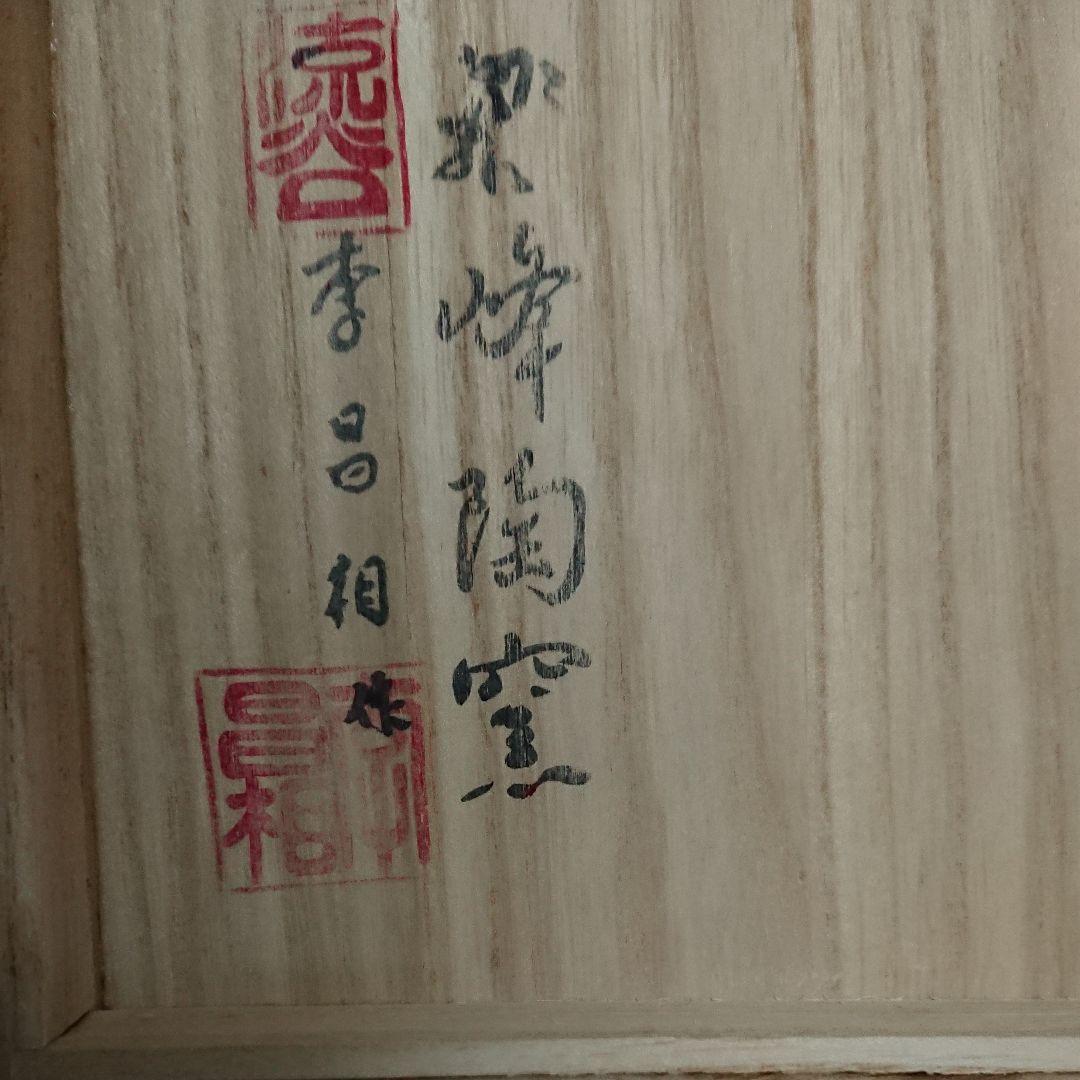 梁峰陶窯
李昌相作
昌相